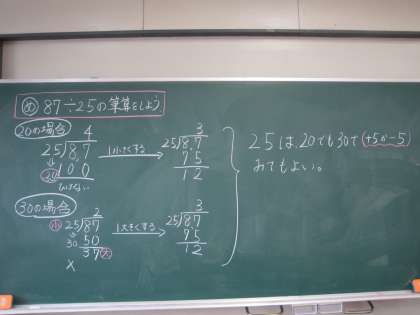 め 87÷25の筆算をしよう
20の場合
4
25)87
↓
20 100
ひけない
1小さくする
3
25)87
75
12
30の場合
2
小 25)87
↓
30 50
37 大
×
1大きくする
3
25)87
75
12
25は、20でも30で(+5か-5)
みてもよい。